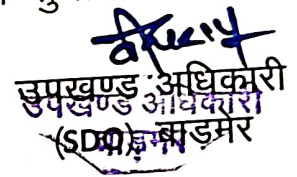 उपखण्ड अधिकारी
उपखण्ड अधिकारी
(SDO) बाडमेर